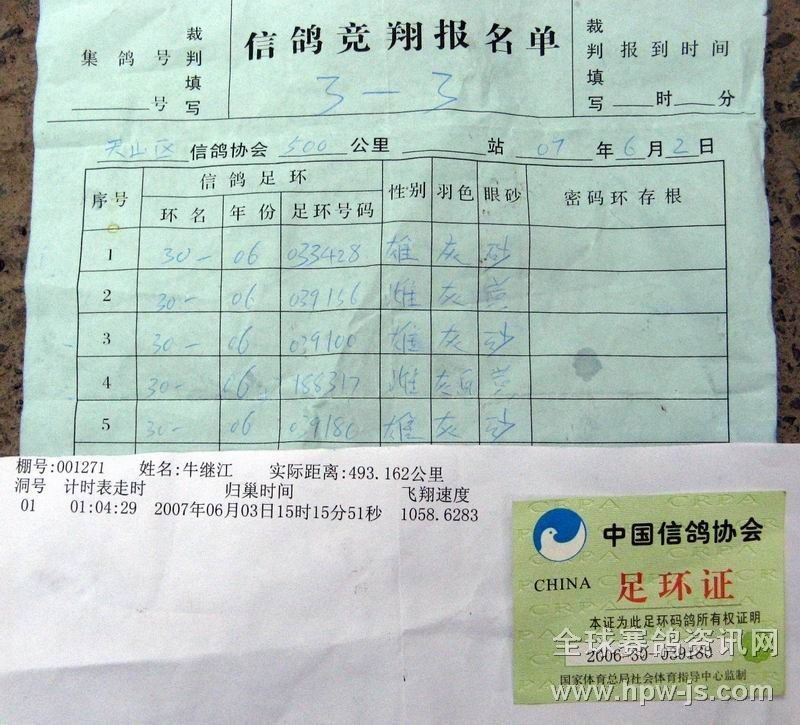 信鸽竞翔报名单
集鸽号 裁判填写
号
3-3
裁判填写 报到时间
时 分
天山区 信鸽协会 500 公里 站 07 年 6 月 2 日
序号 信鸽足环 性别 羽色 眼砂 密码环存根
环名 年份 足环号码
1 30- 06 033428 雄 灰 砂
2 30- 06 039156 雌 灰 黄
3 30- 06 039100 雄 灰 砂
4 30- 06 188317 雌 灰 黄
5 30- 06 039180 雄 灰 砂
棚号:001271 姓名:牛继江 实际距离:493.162公里
洞号 计时表走时 归巢时间 飞翔速度
01 01:04:29 2007年06月03日15时15分51秒 1058.6283
中国信鸽协会
CHINA 足环证
本证为此足环码鸽所有权证明
2006-30-039180
国家体育总局社会体育指导中心监制
全球赛鸽资讯网
www.hpw-js.com